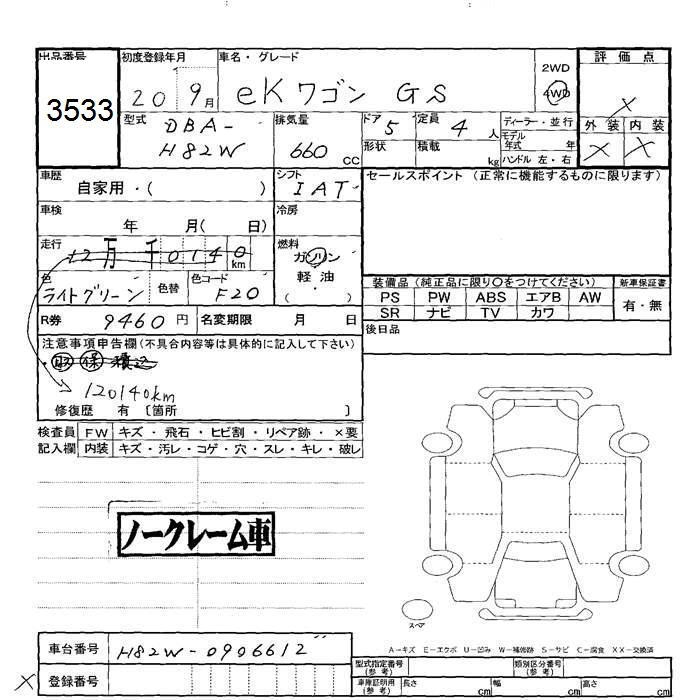 出品番号 初度登録年月 車名・グレード 2WD 評価点
3533 20 9月 eKワゴン GS 4WD ×
型式 DBA- 排気量 ドア 5 定員 4人 ディーラー・並行 外装 内装
H82W 660 cc 形状 積載 kg モデル年式 年 × ×
ハンドル 左・右
車歴 シフト セールスポイント (正常に機能するものに限ります)
自家用・( ) IAT
車検 冷房
年 月( 日)
走行 燃料
12万 千0140km ガソリン
軽油
色 色替 色コード ( )
ライトグリーン F20
装備品 (純正品に限り○をつけてください) 新車保証書
PS PW ABS エアB AW 有・無
SR ナビ TV カワ
R券 9460円 名変期限 月 日
後日品
注意事項申告欄(不具合内容等は具体的に記入して下さい)
取 保 積込
120140km
修復歴 有 [箇所 ]
検査員 FW キズ・飛石・ヒビ割・リペア跡・×要
記入欄 内装 キズ・汚レ・コゲ・穴・スレ・キレ・破レ
ノークレーム車
スペア
A-キズ E-エクボ U-凹み W-補修跡 S-サビ C-腐食 XX-交換済
車台番号 H82W-0906612
× 登録番号
型式指定番号(参考) 類別区分番号(参考)
車庫証明用(参考) 長さ cm 幅 cm 高さ cm